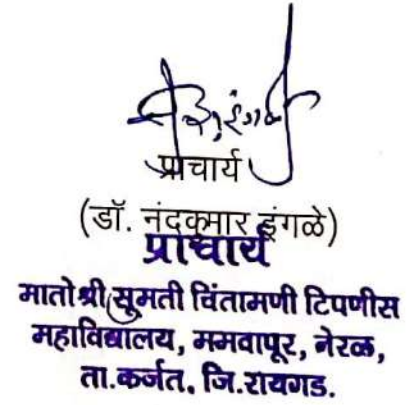 प्राचार्य
(डॉ. नंदकुमार इंगळे)
प्राचार्य
मातोश्री सुमती चिंतामणी टिपणीस
महाविद्यालय, ममदापूर, नेरळ,
ता.कर्जत, जि.रायगड.